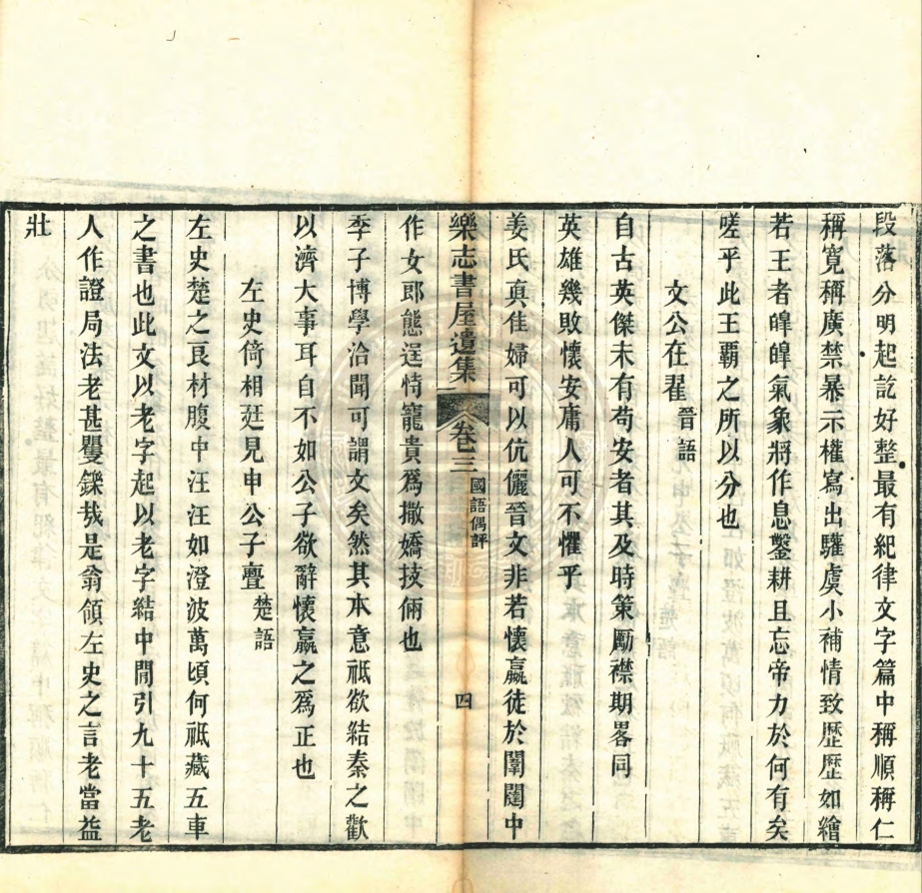 段落分明起訖好整最有紀律文字篇中稱順稱仁
稱寬稱廣禁暴示權寫出驩虞小補情致歷歷如繪
若王者皥皥氣象將作息鑿耕且忘帝力於何有矣
嗟乎此王霸之所以分也
文公在翟 晉語
自古英傑未有苟安者其及時策勵襟期畧同
英雄幾敗懷安庸人可不懼乎
姜氏眞佳婦可以伉儷晉文非若懷嬴徒於闈闥中
樂志書屋遺集 卷三 國語偶評 四
作女郎態逞恃寵貴爲撒嬌技倆也
季子博學洽聞可謂文矣然其本意祗欲結秦之歡
以濟大事耳自不如公子欲辭懷嬴之爲正也
左史倚相廷見申公子亹 楚語
左史楚之良材腹中汪汪如澄波萬頃何祗藏五車
之書也此文以老字起以老字結中間引九十五老
人作證局法老甚矍鑠哉是翁領左史之言老當益
壯